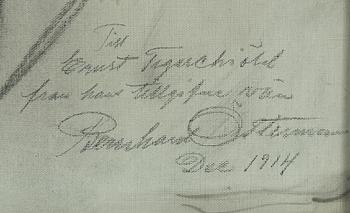 Till
Ernst Tigerschiöld
från hans tillgifne vän
Bernhard Österman
Dec 1914